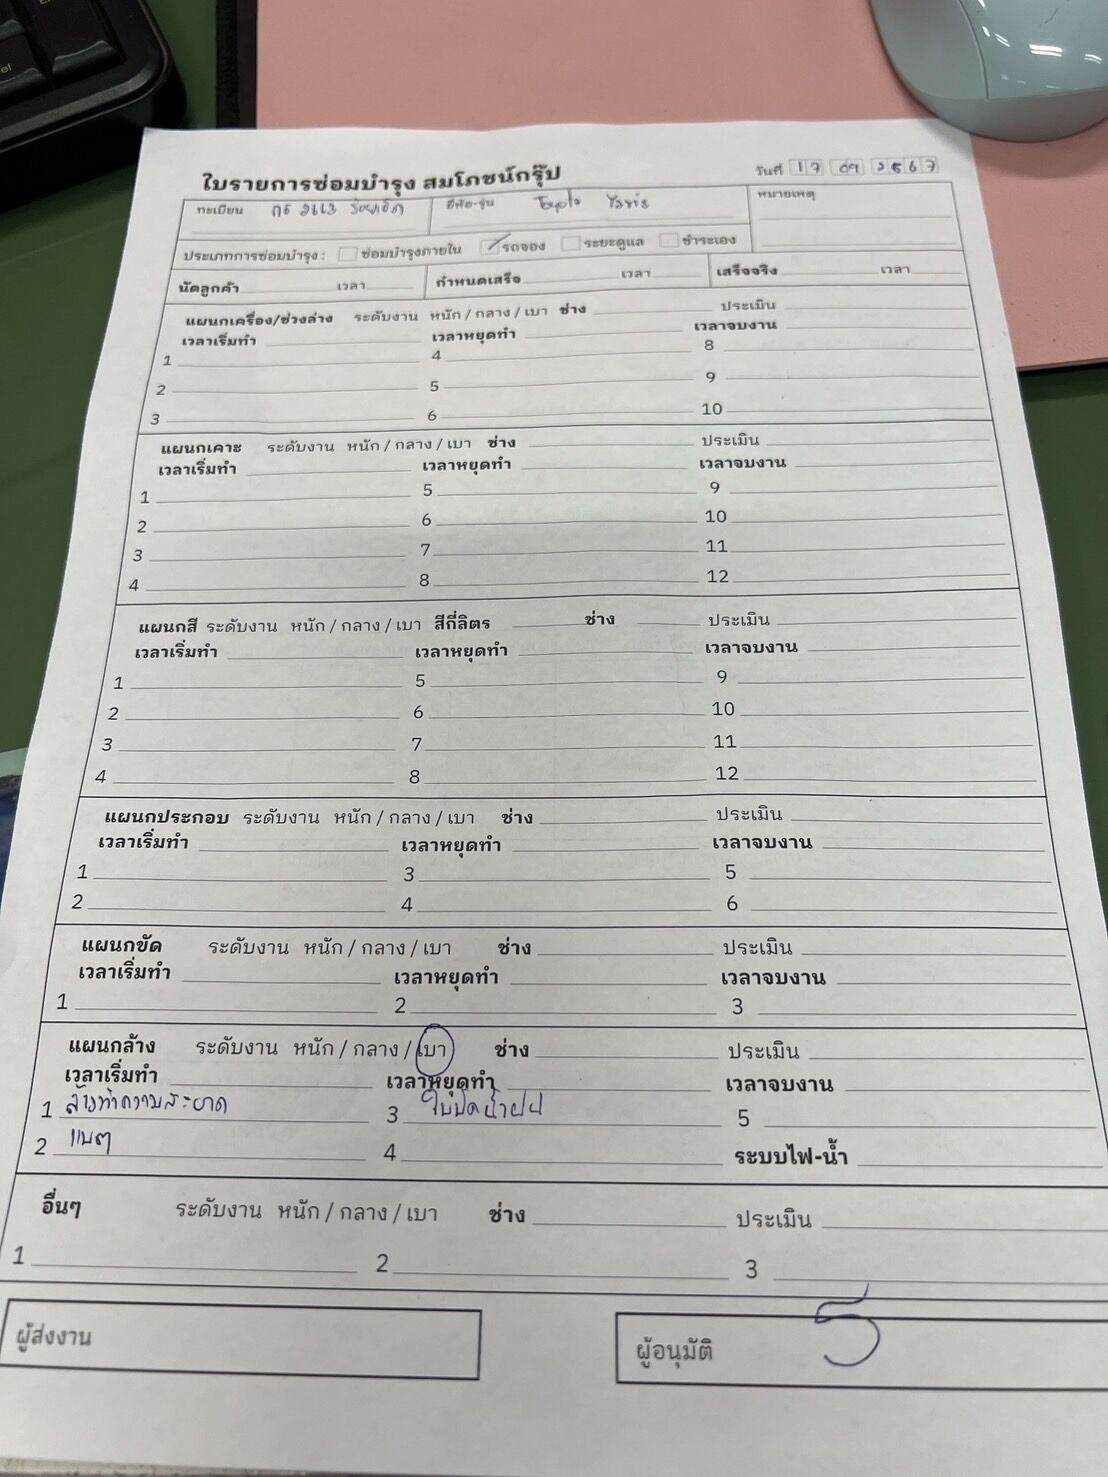 ใบรายการซ่อมบำรุง สมโภชน์กรุ๊ป
วันที่ 17 09 2567
ทะเบียน กธ 2663 ร้อยเอ็ด ยี่ห้อ-รุ่น Toyota Yaris หมายเหตุ
ประเภทการซ่อมบำรุง : ซ่อมบำรุงภายใน รถจอง ระยะดูแล ชำระเอง
นัดลูกค้า เวลา กำหนดเสร็จ เวลา เสร็จจริง เวลา
แผนกเครื่อง/ช่วงล่าง ระดับงาน หนัก / กลาง / เบา ช่าง ประเมิน
เวลาเริ่มทำ เวลาหยุดทำ เวลาจบงาน
1 4 8
2 5 9
3 6 10
แผนกเคาะ ระดับงาน หนัก / กลาง / เบา ช่าง ประเมิน
เวลาเริ่มทำ เวลาหยุดทำ เวลาจบงาน
1 5 9
2 6 10
3 7 11
4 8 12
แผนกสี ระดับงาน หนัก / กลาง / เบา สีกี่ลิตร ช่าง ประเมิน
เวลาเริ่มทำ เวลาหยุดทำ เวลาจบงาน
1 5 9
2 6 10
3 7 11
4 8 12
แผนกประกอบ ระดับงาน หนัก / กลาง / เบา ช่าง ประเมิน
เวลาเริ่มทำ เวลาหยุดทำ เวลาจบงาน
1 3 5
2 4 6
แผนกขัด ระดับงาน หนัก / กลาง / เบา ช่าง ประเมิน
เวลาเริ่มทำ เวลาหยุดทำ เวลาจบงาน
1 2 3
แผนกล้าง ระดับงาน หนัก / กลาง / เบา ช่าง ประเมิน
เวลาเริ่มทำ เวลาหยุดทำ เวลาจบงาน
1 ล้างทำความสะอาด 3 ใบปัดน้ำฝน 5
2 แบต 4 ระบบไฟ-น้ำ
อื่นๆ ระดับงาน หนัก / กลาง / เบา ช่าง ประเมิน
1 2 3
ผู้ส่งงาน ผู้อนุมัติ